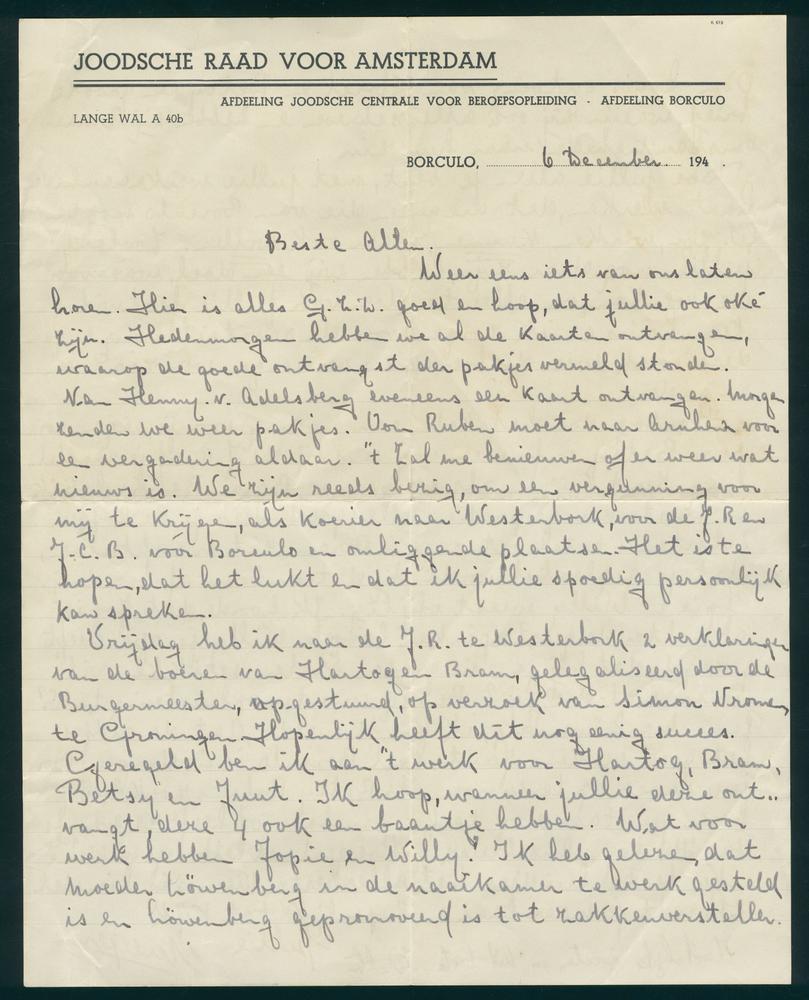 JOODSCHE RAAD VOOR AMSTERDAM
AFDEELING JOODSCHE CENTRALE VOOR BEROEPSOPLEIDING · AFDEELING BORCULO
LANGE WAL A 40b
BORCULO, 6 December 194 .
Beste Allen.
Weer eens iets van ons laten
horen. Hier is alles G.z.D. goed en hoop, dat jullie ook oké
zijn. Hedenmorgen hebben we al de kaarten ontvangen,
waarop de goede ontvangst der pakjes vermeld stonden.
Van Henny v. Adelsberg eveneens een kaart ontvangen. Morgen
zenden we weer pakjes. Oom Ruben moet naar Arnhem voor
een vergadering aldaar. 't Zal me benieuwen of er weer wat
nieuws is. We zijn reeds bezig, om een vergunning voor
mij te krijgen, als koerier naar Westerbork, voor de J.R en
J.C.B. voor Borculo en omliggende plaatsen. Het is te
hopen, dat het lukt en dat ik jullie spoedig persoonlijk
kan spreken.
Vrijdag heb ik naar de J.R. te Westerbork 2 verklaringen
van de boeren van Hartog en Bram, gelegaliseerd door de
Burgermeester, opgestuurd, op verzoek van Simon Vromen,
te Groningen. Hopenlijk heeft dit nog eenig succes.
Geregeld ben ik aan 't werk voor Hartog, Bram,
Betsy en Juut. Ik hoop, wanneer jullie deze ont..
vangt, deze 4 ook een baantje hebben. Wat voor
werk hebben Jopie en Willy? Ik heb gelezen, dat
moeder Löwenberg in de naaikamer te werk gesteld
is en Löwenberg gepromoveerd is tot zakkenversteller.